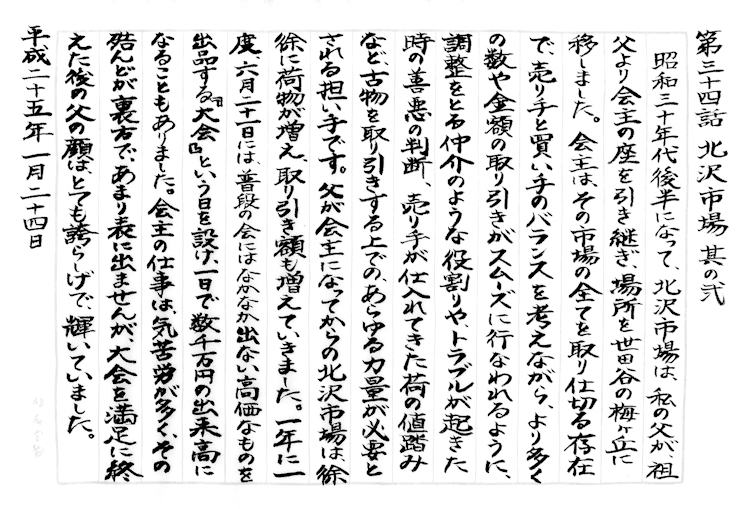 第三十四話 北沢市場 其の弐
昭和三十年代後半になって、北沢市場は、私の父が、祖
父より会主の座を引き継ぎ、場所を世田谷の梅ヶ丘に
移しました。会主は、その市場の全てを取り仕切る存在
で、売り手と買い手のバランスを考えながら、より多く
の数や金額の取り引きがスムーズに行なわれるように、
調整をとる仲介のような役割りや、トラブルが起きた
時の善悪の判断、売り手が仕入れてきた荷の値踏み
など、古物を取り引きする上での、あらゆる力量が必要と
される担い手です。父が会主になってからの北沢市場は、徐
徐に荷物が増え、取り引き額も増えていきました。一年に一
度、六月二十一日には、普段の会にはなかなか出ない高価なものを
出品する『大会』という日を設け、一日で数千万円の出来高に
なることもありました。会主の仕事は、気苦労が多く、その
殆んどが裏方で、あまり表に出ませんが、大会を満足に終
えた後の父の顔は、とても誇らしげで、輝いていました。
平成二十五年一月二十四日